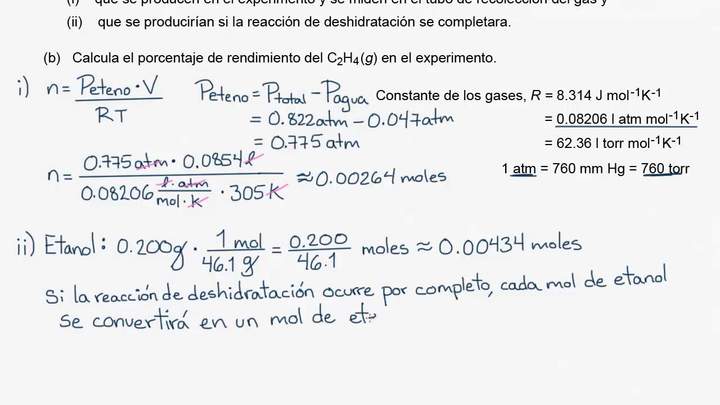 (i) que se producen en el experimento y se miden en el tubo de recolección del gas y
(ii) que se producirían si la reacción de deshidratación se completara.
(b) Calcula el porcentaje de rendimiento del C₂H₄(g) en el experimento.
i) n = Peteno · V / RT
Peteno = Ptotal − Pagua
= 0.822 atm − 0.047 atm
= 0.775 atm
Constante de los gases, R = 8.314 J mol⁻¹K⁻¹
= 0.08206 l atm mol⁻¹K⁻¹
= 62.36 l torr mol⁻¹K⁻¹
1 atm = 760 mm Hg = 760 torr
n = 0.775 atm · 0.0854 l / 0.08206 l·atm / mol·K · 305 K ≈ 0.00264 moles
ii) Etanol: 0.200g · 1 mol / 46.1 g = 0.200 / 46.1 moles ≈ 0.00434 moles
Si la reacción de deshidratación ocurre por completo, cada mol de etanol
se convertirá en un mol de et